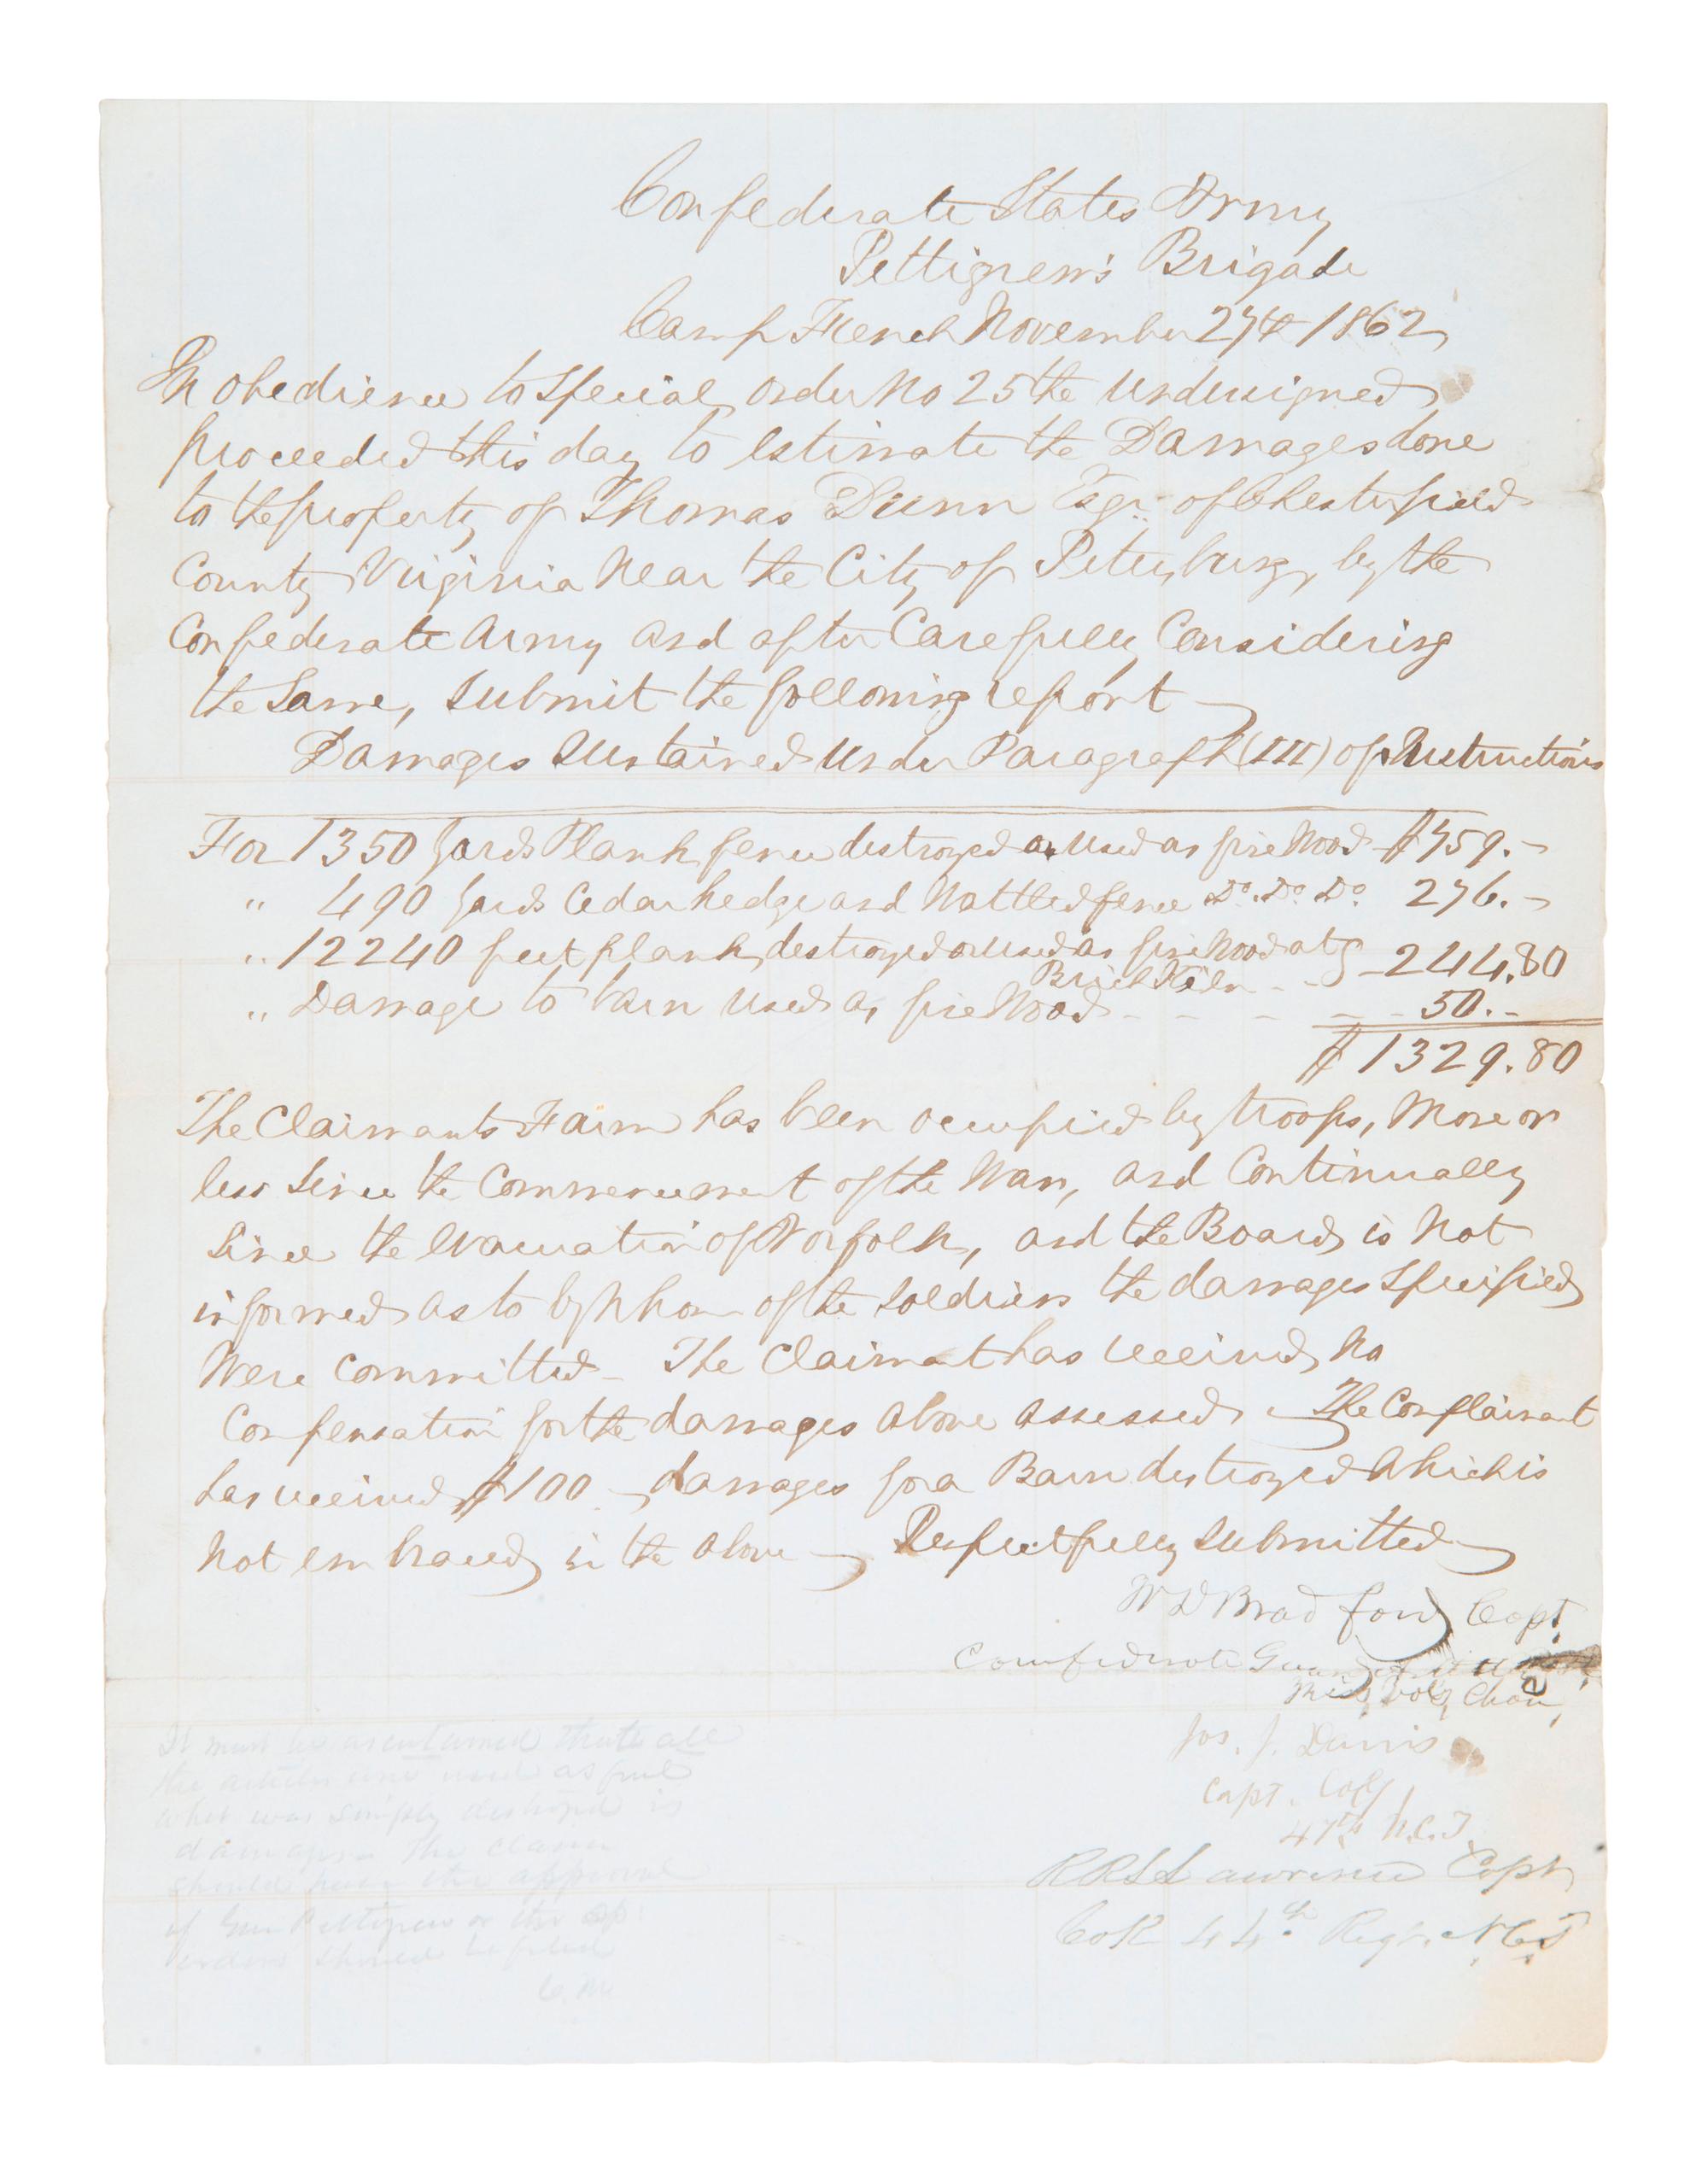 Confederate States Army
Pettigrew's Brigade
Camp French November 27th 1862
In obedience to Special order No 25 the undersigned
proceeded this day to estimate the Damages done
to the property of Thomas Dunn Esqr. of Chesterfield
County Virginia near the City of Petersburg, by the
Confederate Army and after Carefully Considering
the Same, submit the following report
Damages Sustained under Paragraph (III) of Instructions
For 1350 yards Plank fence destroyed or used as fire wood $759.-
" 490 yards Cedar hedge and Wattled fence Do. Do Do. 276.-
" 12240 feet plank, destroyed or used as fire wood at 244.80
Brick Kiln
" Damage to barn used as fire Wood - - - - - 50.-
$1329.80
The Claimants Farm has been occupied by troops, more or
less Since the Commencement of the War, and Continually
Since the evacuation of Norfolk, and the Board is not
informed as to by whom of the Soldiers the damages Specified
Were Committed - The Claimant has received no
Compensation for the damages above assessed. The Complainant
has received $100 damages for a Barn destroyed which is
not embraced in the above Respectfully Submitted
W D Bradford Capt.
Confederate Guards
Miss Vols,
Jos. J. Davis
Capt. Co G
47th N.C.T.
Lawrence Capt
Co 44th Regt. N.C.T
It must be ascertained that all
the articles were used as fuel
what was simply destroyed is
damages. The claim
should have the approval
of Gen Pettigrew or the
orders should be filed